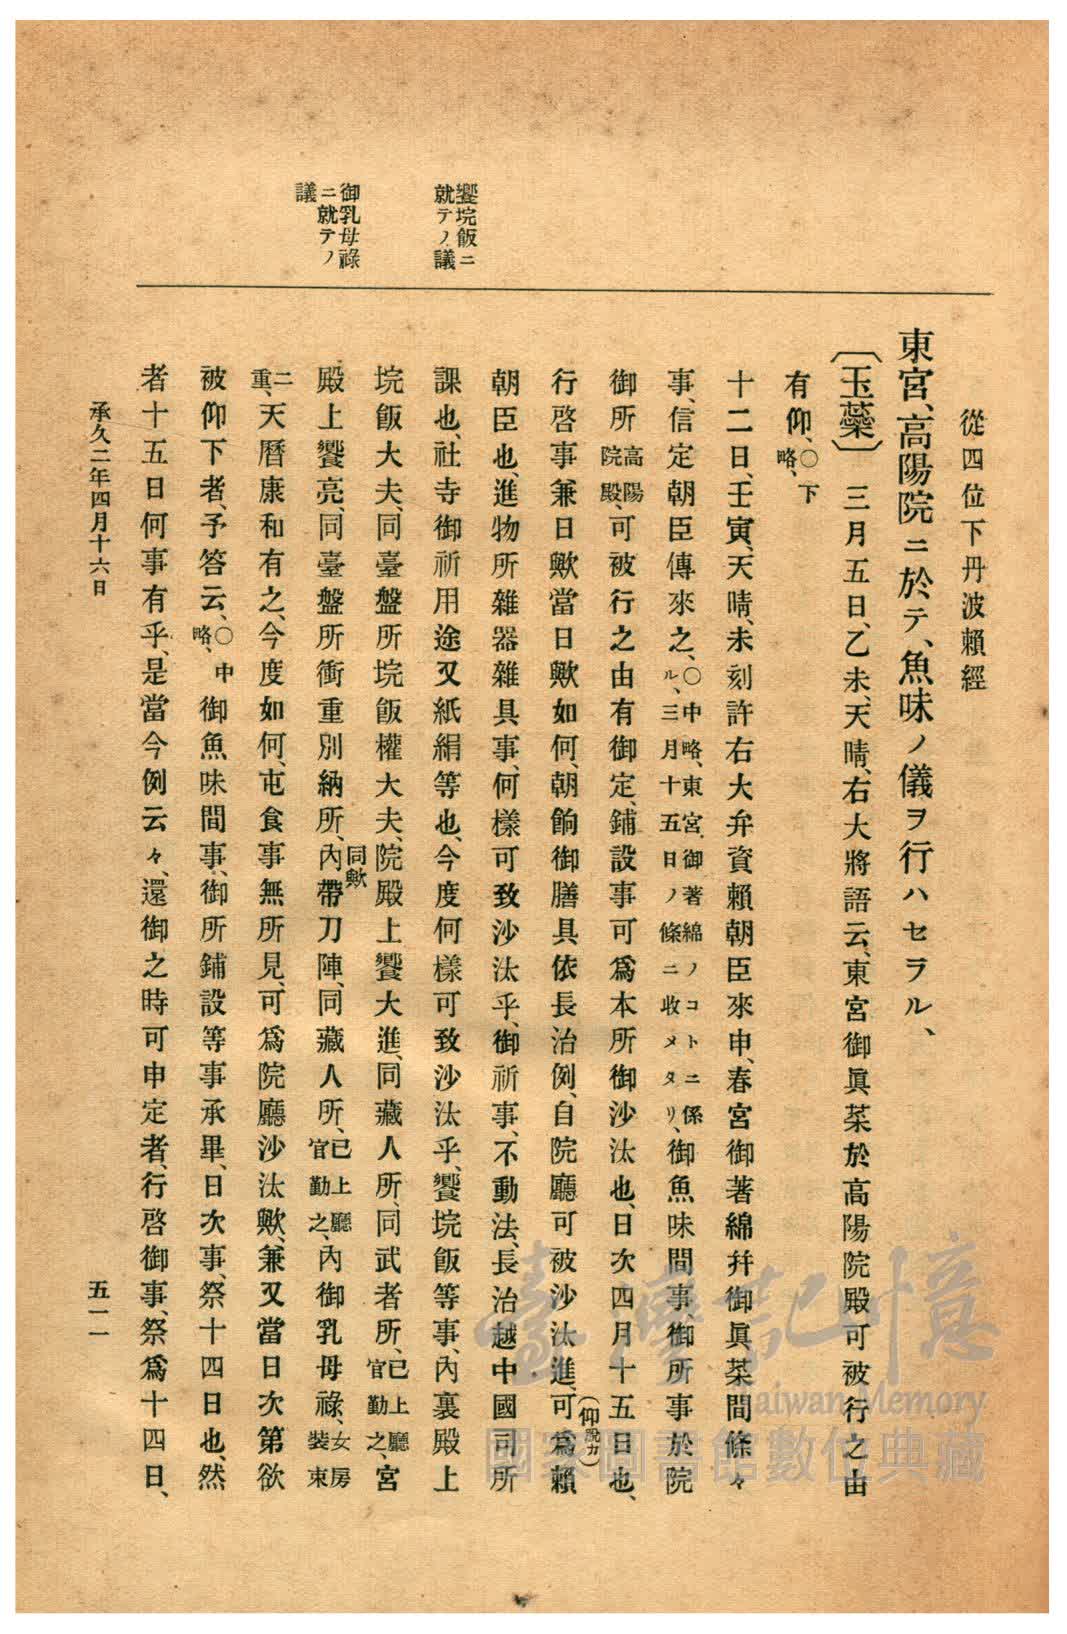 饗垸飯ニ
就テノ議
御乳母祿
ニ就テノ
議
從四位下丹波賴經
東宮、高陽院ニ於テ、魚味ノ儀ヲ行ハセラル、
〔玉蘂〕三月五日、乙未、天晴、右大將語云、東宮御眞菜於高陽院殿可被行之由
有仰、○下略、
十二日、壬寅、天晴、未刻許右大弁資賴朝臣來申、春宮御著綿幷御眞菜間條々
事、信定朝臣傳來之、○中略、東宮、御著綿ノコトニ係ル、三月十五日ノ條ニ收メタリ、御魚味間事、御所事於院
御所高陽院殿、可被行之由有御定、鋪設事可爲本所御沙汰也、日次四月十五日也、
行啓事兼日歟當日歟如何、朝餉御膳具依長治例、自院廳可被沙汰進、可爲(仰脫カ)賴
朝臣也、進物所雜器雜具事、何樣可致沙汰乎、御祈事、不動法、長治越中國司所
課也、社寺御祈用途又紙絹等也、今度何樣可致沙汰乎、饗垸飯等事、內裏殿上
垸飯大夫、同臺盤所垸飯權大夫、院殿上饗大進、同藏人所、同武者所、已上廳官勤之、宮
殿上饗亮、同臺盤所衝重別納所、內同歟帶刀陣、同藏人所、已上廳官勤之、內御乳母祿、女房裝束
二重、天曆康和有之、今度如何、屯食事無所見、可爲院廳沙汰歟、兼又當日次第欲
被仰下者、予答云、○中略、御魚味間事、御所鋪設等事承畢、日次事、祭十四日也、然
者十五日何事有乎、是當今例云々、還御之時可申定者、行啓御事、祭爲十四日、
承久二年四月十六日
五一一
臺灣記憶
Taiwan Memory
國家圖書館數位典藏